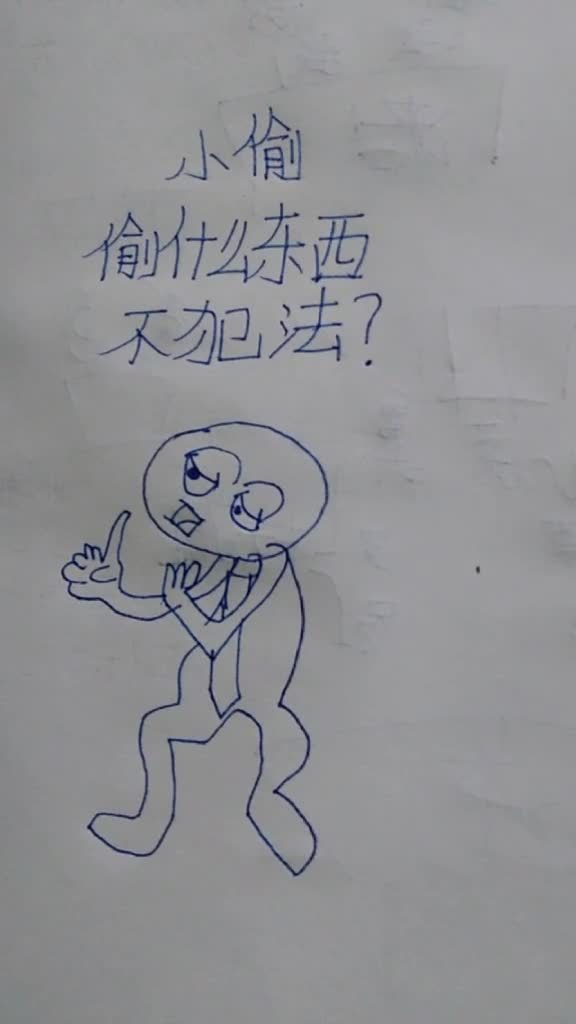 小偷
偷什么东西
不犯法?